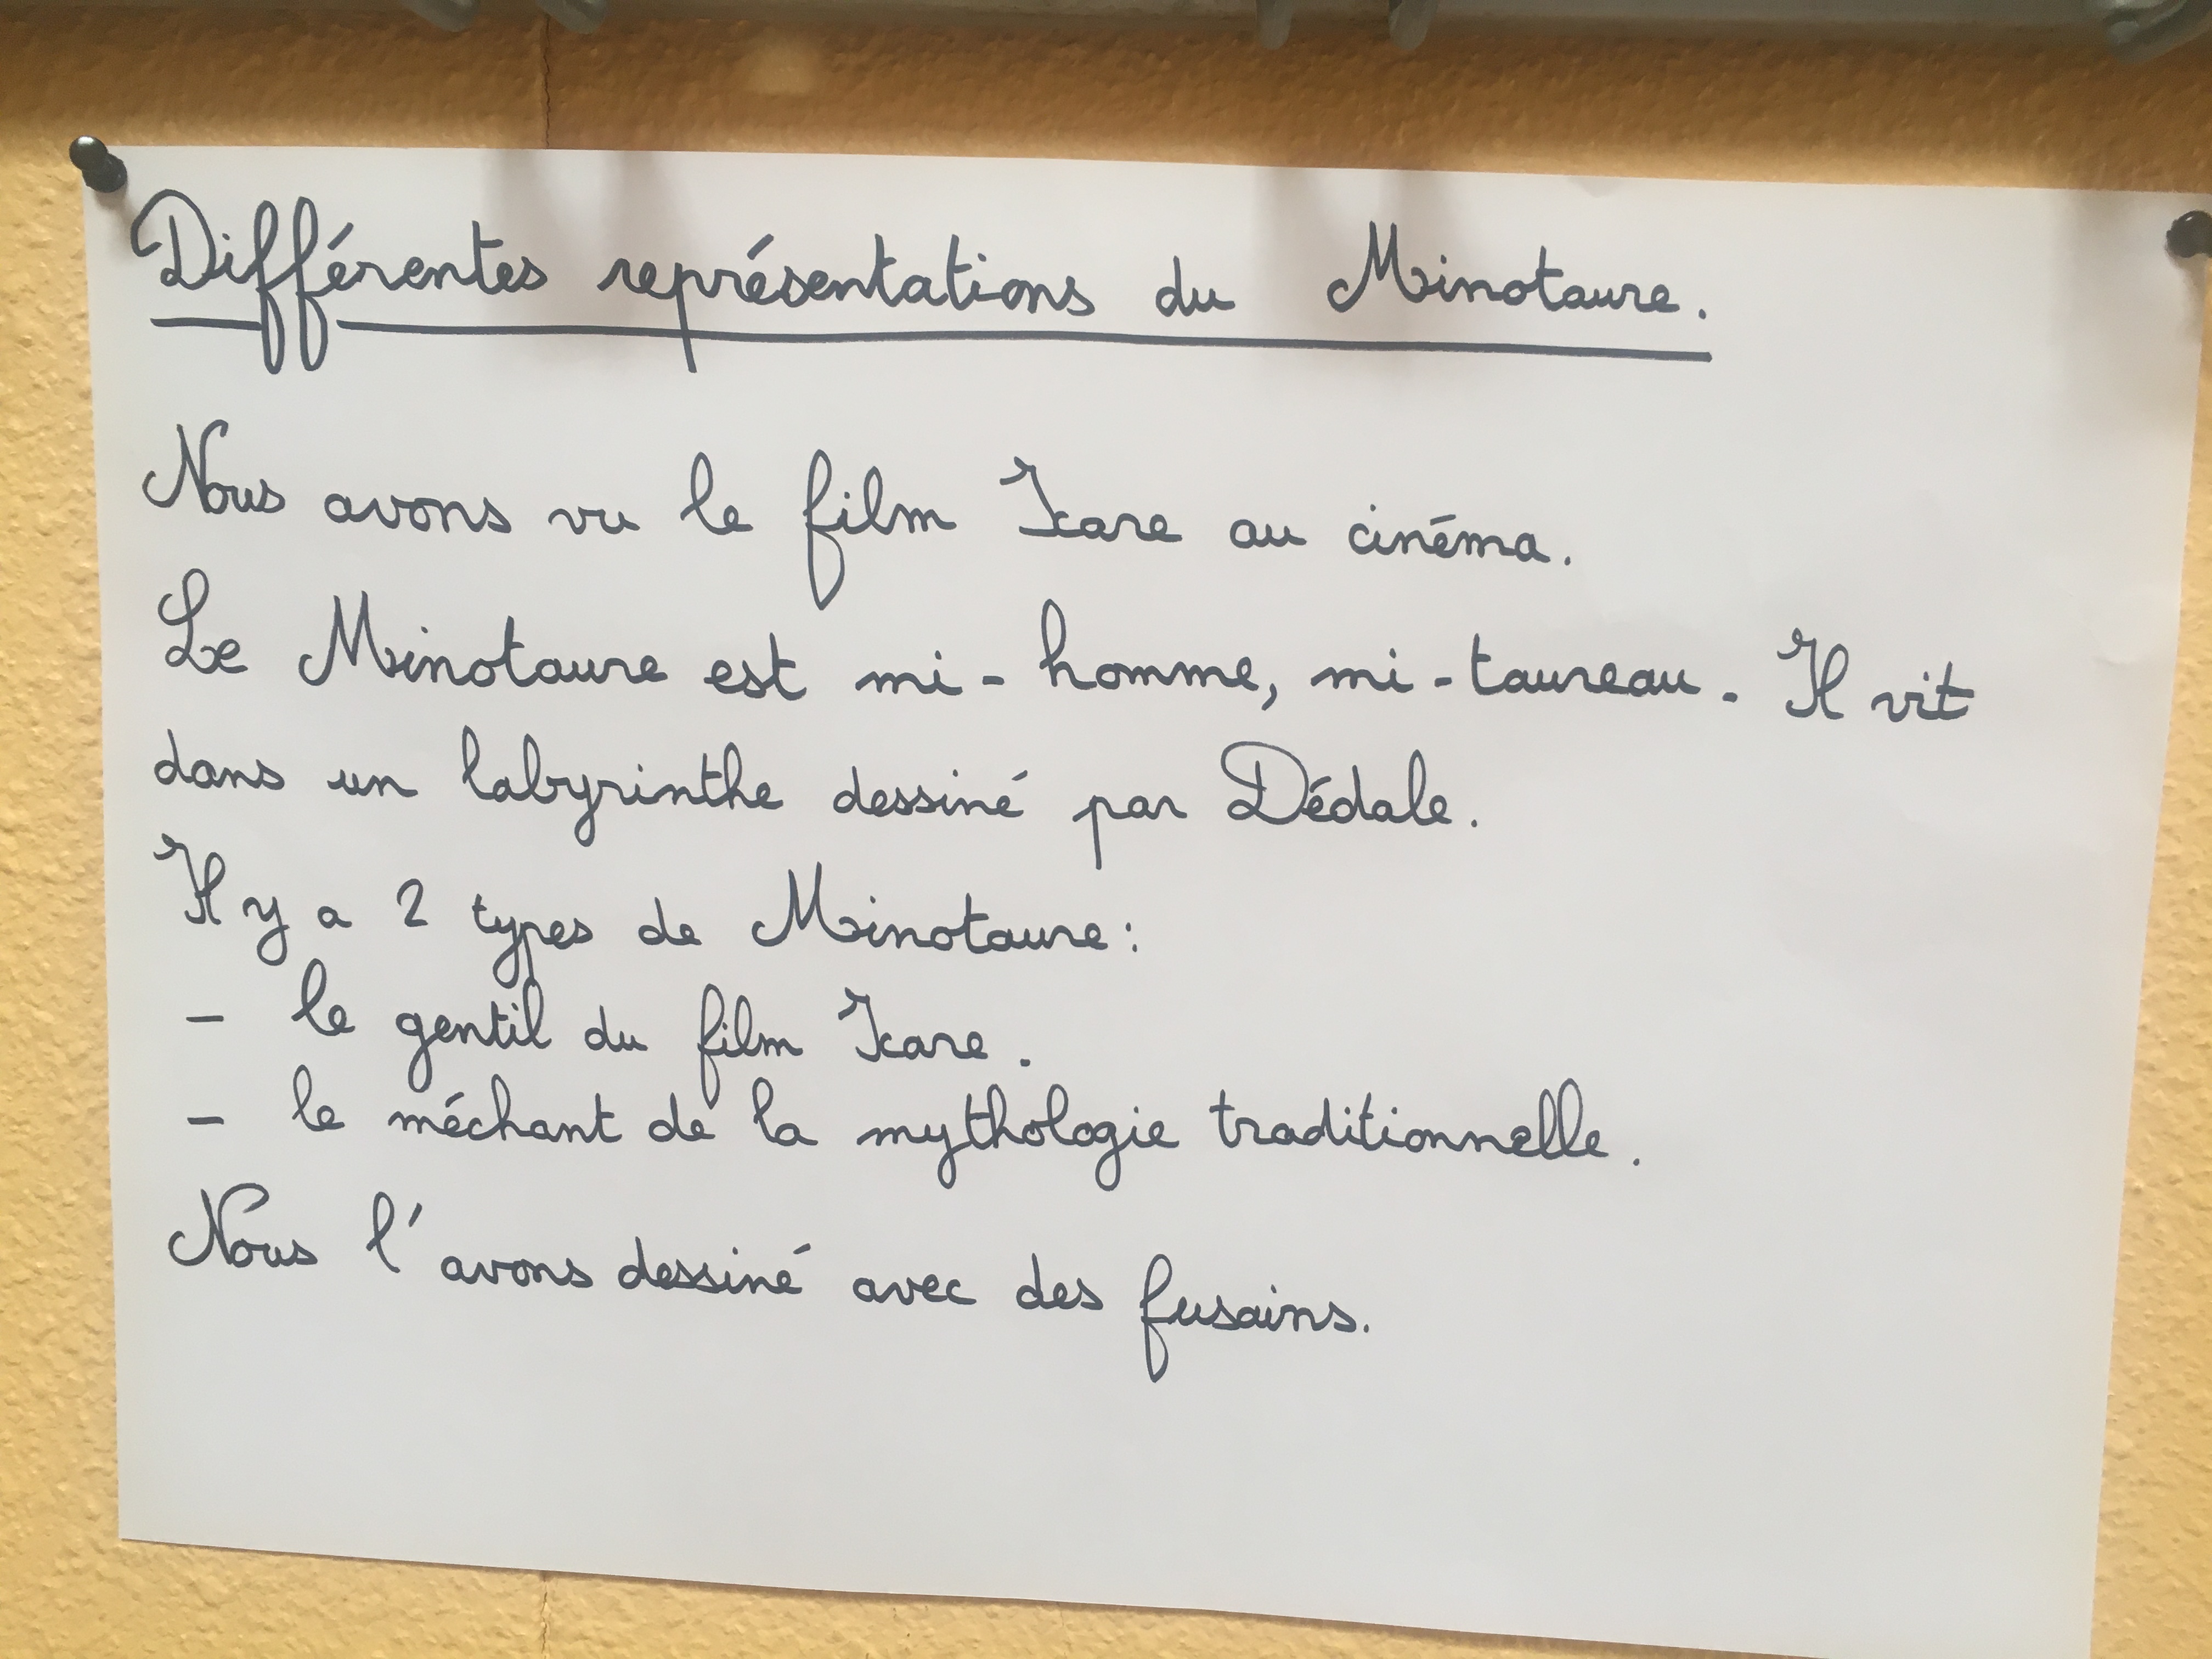 Différentes représentations du Minotaure.
Nous avons vu le film Icare au cinéma.
Le Minotaure est mi-homme, mi-taureau. Il vit
dans un labyrinthe dessiné par Dédale.
Il y a 2 types de Minotaure:
- le gentil du film Icare.
- le méchant de la mythologie traditionnelle.
Nous l'avons dessiné avec des fusains.